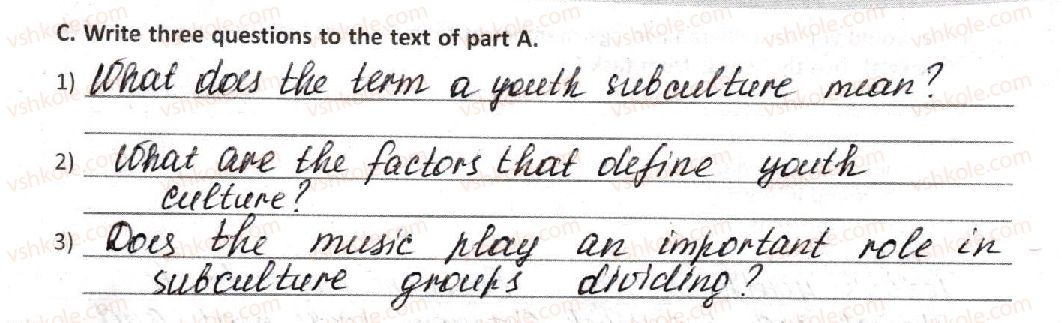 C. Write three questions to the text of part A.
1) What does the term a youth subculture mean?
2) What are the factors that define youth
culture?
3) Does the music play an important role in
subculture groups dividing?